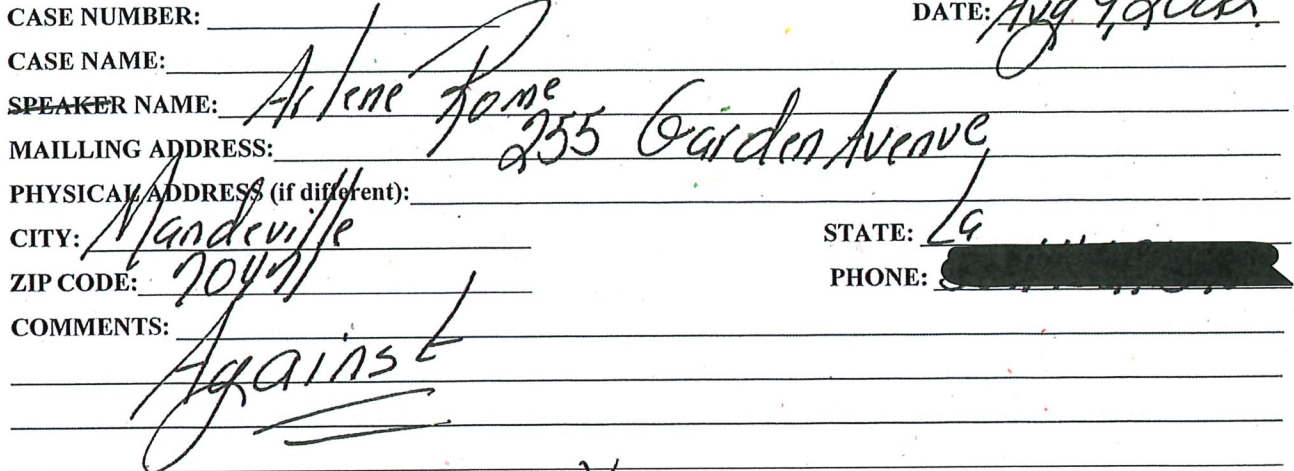 CASE NUMBER: DATE: Aug 9,
CASE NAME:
SPEAKER NAME: Arlene Rome
MAILLING ADDRESS: 255 Garden Avenue
PHYSICAL ADDRESS (if different):
CITY: Mandeville STATE: La
ZIP CODE: 70471 PHONE:
COMMENTS:
Against